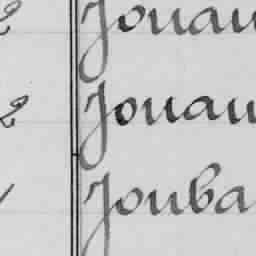 2 Jouau
2 Jouau
Jouba